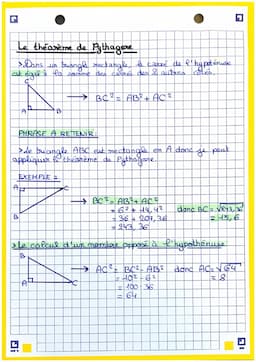 Le théorème de Pythagore
→ Dans un triangle rectangle, le carré de l'hypoténuse
est égal à la somme des carrés des 2 autres côtés.
C
→ BC² = AB² + AC²
A B
PHRASE A RETENIR :
→ Le triangle ABC est rectangle en A donc je peut
appliquer le théorème de Pythagore.
EXEMPLE :
A C
→ BC² = AB² + AC² donc BC = √243,36
= 6² + 14,4² = 15,6
= 36 + 207,36
= 243,36
B
→ Le calcul d'un nombre opposé à l'hypoténuse
B
→ AC² = BC² - AB² donc AC = √64
= 10² - 6² = 8
= 100 - 36
= 64
A C